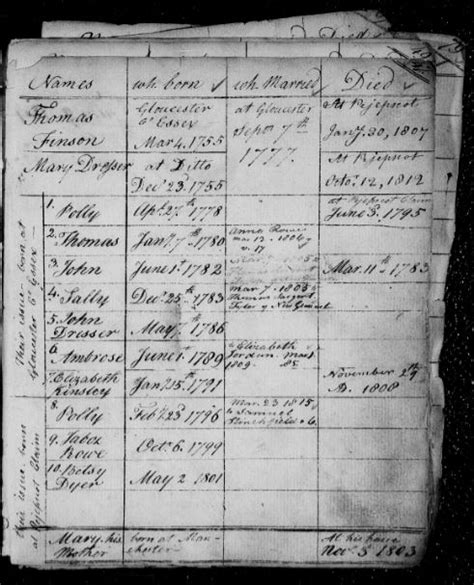 Names wh. born wh. Married Died
Thomas Finson Gloucester Essex Mar 4. 1755 at Gloucester Sept 7th 1777. At Pejepscot Jany 30, 1807
Mary Dresser at Ditto Dec 23. 1755 At Pejepscot Octo. 12, 1812
Their issue born at Gloucester Essex
1. Polly Apl. 27th 1778 at Pejepscot Claim June 5. 1795
2. Thomas Jany 7th 1780 Anna Rowe mar 12 1804
3. John June 1st 1782 Mar. 11th 1783
4. Sally Dec. 25th 1783 mar 7 1805 Thomas Sargent
5. John Dresser May 7th 1786
6. Ambrose June 1 1789 Elizabeth Jordan mar 1809
7. Elizabeth Kinsley Jany 15th 1791 November 24 1808
their issue born at Pejepscot Claim
8. Polly Feb. 23 1796 Mar. 23 1815 to Samuel
9. Jabez Rowe Oct. 6. 1799
10. Betsy Dyer May 2 1801
Mary, his Mother born at Manchester At his house Nov. 5 1803